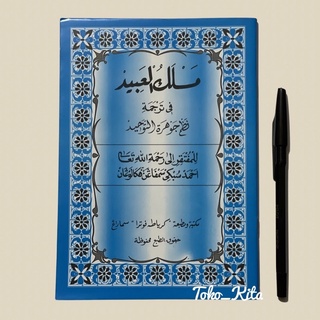 مسلك العبيد
في ترجمة
نظم جوهرة التوحيد
للمفتقر إلى رحمة الله تعالى
احمد سبكي
مكتبة ومطبعة "كرياطا فوترا" سماراغ
حقوق الطبع محفوظة
Toko_Kita